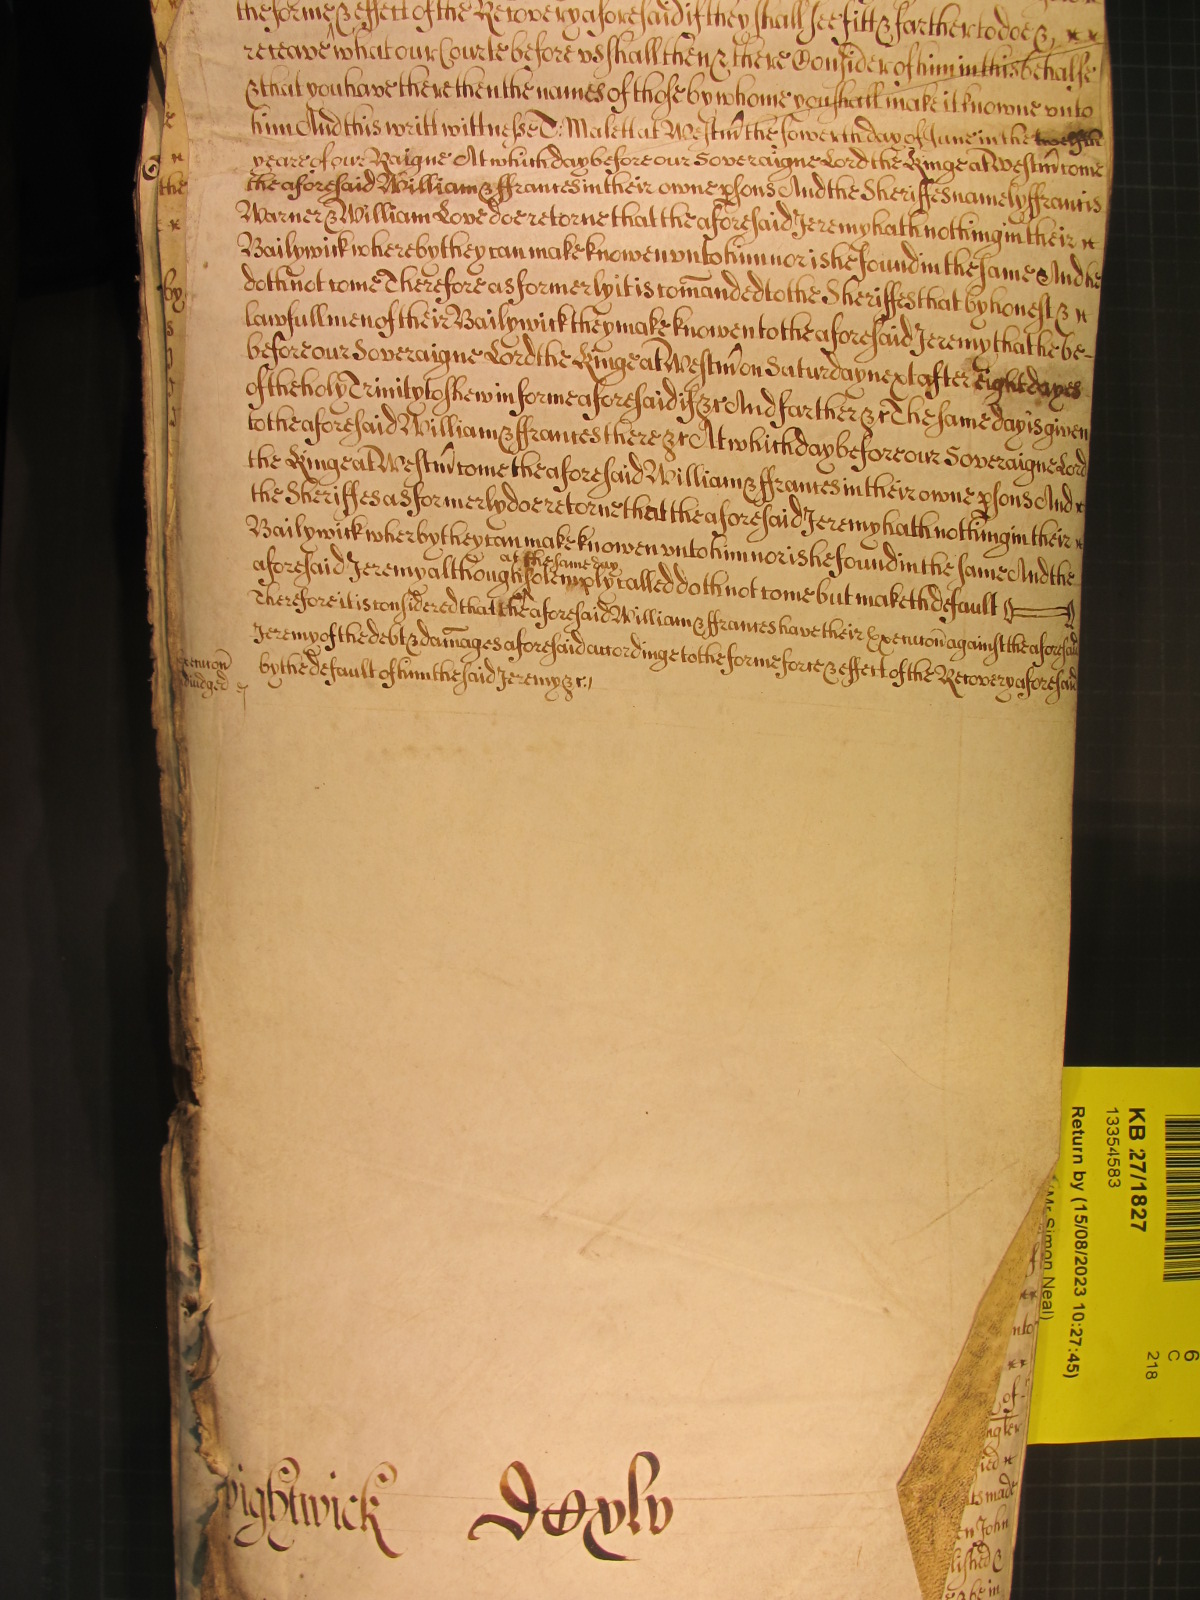 the forme & effect of the Recovery aforesaid if they shall see fitt & farther to doe &
receave what our Courte before us shall then & there Consider of him in this behalfe
& that you have there then the names of those by whome you shall make it knowne unto
him And this writt wittnesse T: Malett at Westm̄ the fowerth day of June in the twelfth
yeare of our Raigne At which day before our Soveraigne Lord the Kinge at Westm̄ come
the aforesaid William & ffrances in their owne psons And the Sheriffes namely ffrancis
Warner & William Love doe retorne that the aforesaid Jeremy hath nothing in their
Bailywick whereby they can make knowen unto him nor is he found in the same And he
doth not come Therefore as formerly it is com̄anded to the Sheriffes that by honest &
lawfull men of their Bailywick they make knowen to the aforesaid Jeremy that he be
before our Soveraigne Lord the Kinge at Westm̄ on Saturday next after eight dayes
of the holy Trinity to shew in forme aforesaid if &c And farther &c The same day is given
to the aforesaid William & ffrances there &c At which day before our Soveraigne Lord
the Kinge at Westm̄ come the aforesaid William & ffrances in their owne psons And
the Sheriffes as formerly doe retorne that the aforesaid Jeremy hath nothing in their
Bailywick wherby they can make knowen unto him nor is he found in the same And the
at the same day
aforesaid Jeremy although solemply called doth not come but maketh default
Therefore it is considered that the aforesaid William & ffrances have their Execution̄ against the aforesaid
Jeremy of the debt & dam̄ages aforesaid accordinge to the forme force & effect of the Recovery aforesaid
by the default of him the said Jeremy &c.
the
by
KB 27/1827
13354583
Return by (15/08/2023 10:27:45)
(Mr Simon Neal)
6
C
218
nto
of
ied
ts made
en John
lished
pightwick DCxlv